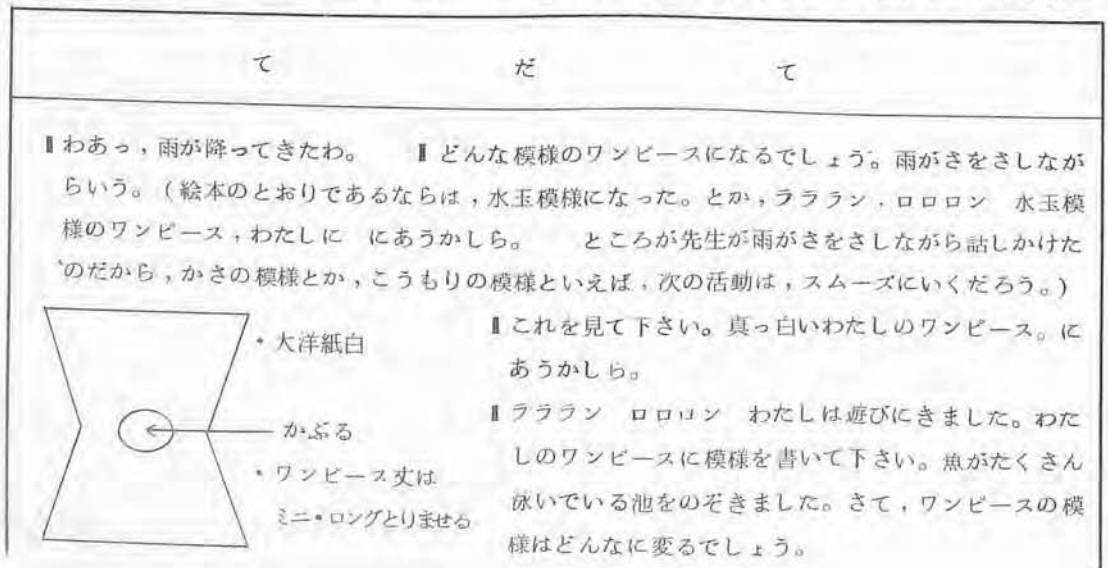 て だ て
▮わあっ，雨が降ってきたわ。 ▮どんな模様のワンピースになるでしょう。雨がさをさしなが
らいう。（絵本のとおりであるならは，水玉模様になった。とか，ラララン．ロロロン 水玉模
様のワンピース，わたしに にあうかしら。 ところが先生が雨がさをさしながら話しかけた
のだから，かさの模様とか，こうもりの模様といえば，次の活動は，スムーズにいくだろう。）
・大洋紙白
かぶる
・ワンピース丈は
ミニ・ロングとりませる
▮これを見て下さい。真っ白いわたしのワンピース。に
あうかしら。
▮ラララン ロロロン わたしは遊びにきました。わた
しのワンピースに模様を書いて下さい。魚がたくさん
泳いでいる池をのぞきました。さて，ワンピースの模
様はどんなに変るでしょう。